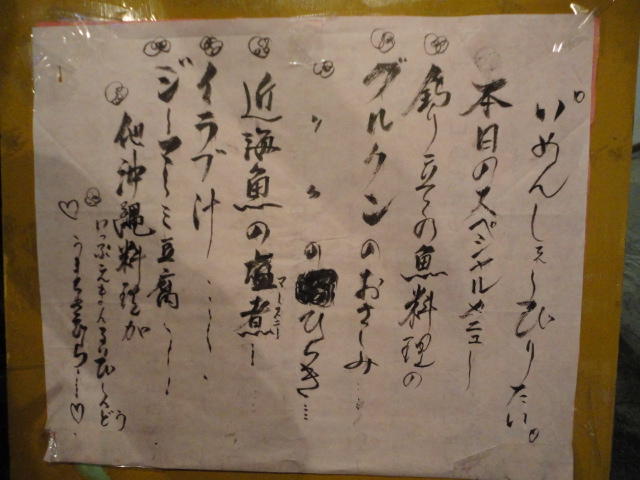 いめんしぇ〜びりたい。
本日のスペシャルメニュー
釣り立ての魚料理の
グルクンのおさしみ…
〃 〃 のひらき…
近海魚の塩煮ー
マースニー
イラブ汁……
ジーマーミ豆腐……
他沖縄料理が
いっぷぇ
うま